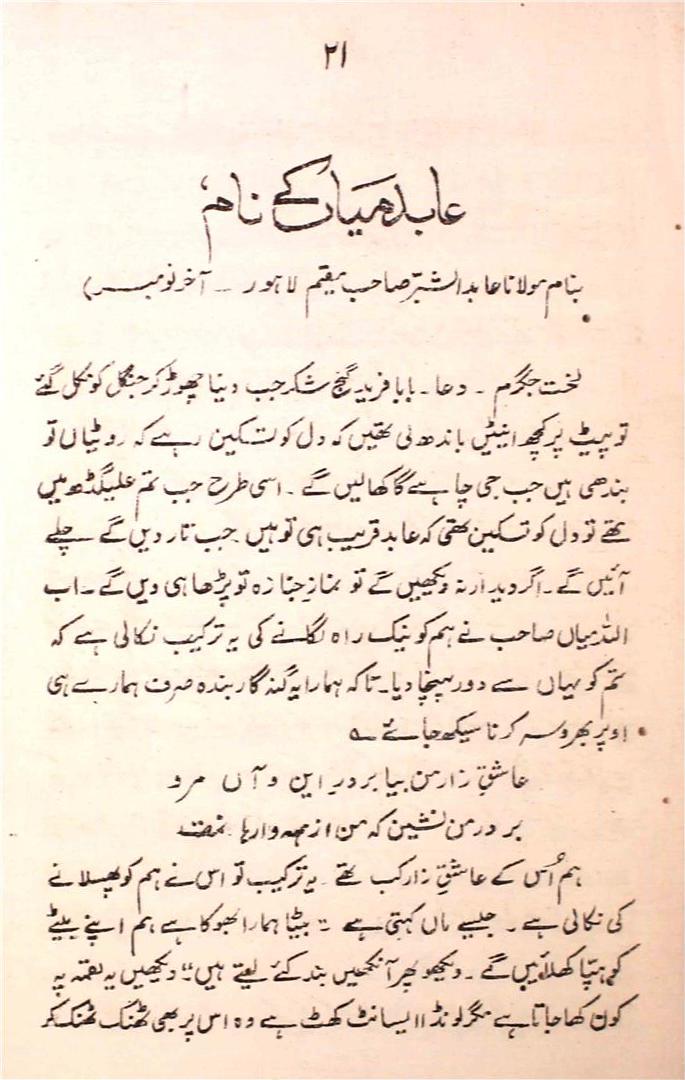 ۲۱
عابد میاں کے نام،
بنام مولانا عابد الشبّر صاحب مقیم لاہور ۔ آخر نومبر)
لخت جگرم ۔ دعا ۔ بابا فرید گنج شکر جب دنیا چھوڑ کر جنگل کو نکل گئے
تو پیٹ پر کچھ اینٹیں باندھ لی تھیں کہ دل کو تسکین رہے کہ روٹیاں تو
بندھی ہیں جب جی چاہے گا کھالیں گے ۔ اسی طرح جب تم علیگڈھ میں
تھے تو دل کو تسکین تھی کہ عابد قریب ہی تو ہیں جب تار دیں گے ۔ چلے
آئیں گے ۔ اگر دیدار نہ دیکھیں گے تو نماز جنازہ تو پڑھا ہی دیں گے ۔ اب
اللہ میاں صاحب نے ہم کو نیک راہ لگانے کی یہ ترکیب نکالی ہے کہ
تم کو یہاں سے دور پہنچا دیا ۔ تاکہ ہمارا یہ گنہگار بندہ صرف ہمارے ہی
اوپر بھروسہ کرنا سیکھ جائے ؎
عاشقِ زار من بیا بر درِ این و آں مرو
بر در من نشین کہ من از ہمہ وارہا نمت
ہم اُس کے عاشقِ زار کب تھے ۔ یہ ترکیب تو اس نے ہم کو پھسلانے
کی نکالی ہے ۔ جیسے ماں کہتی ہے "بیٹا ہمارا بھوکا ہے ہم اپنے بیٹے
کو ہپّا کھلائیں گے ۔ دیکھو پھر آنکھیں بند کئے لیتے ہیں" دیکھیں یہ لقمہ یہ
کون کھا جاتا ہے مگر لونڈا ایسا نٹ کھٹ ہے وہ اس پر بھی ٹھنک ٹھنک کر